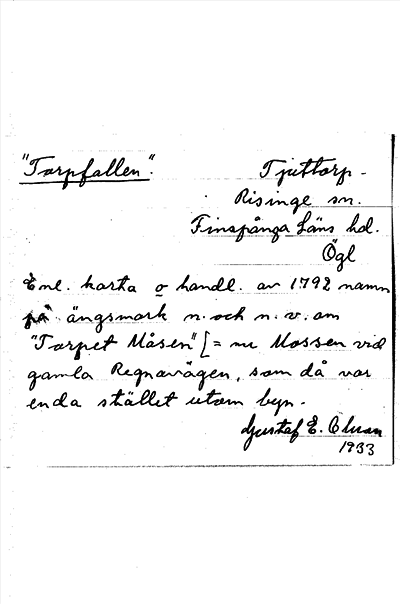 "Torpfallen".
Tjuttorp.
Risinge sn.
Finspånga Läns hd.
Ögl
Enl. karta o handl. av 1792 namn
på ängsmark n. och n. v. om
"Torpet Måsen" [= nu Mossen vid
gamla Regnavägen, som då var
enda stället utom byn.
Gustaf E.
1933